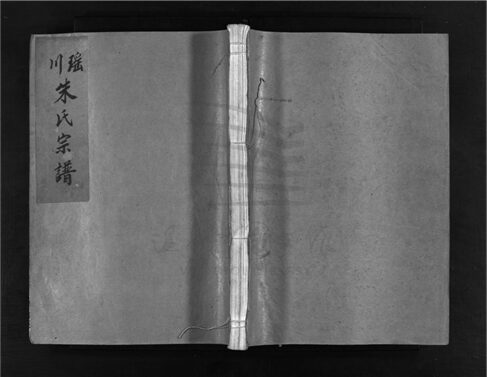 瑶川
朱氏宗譜